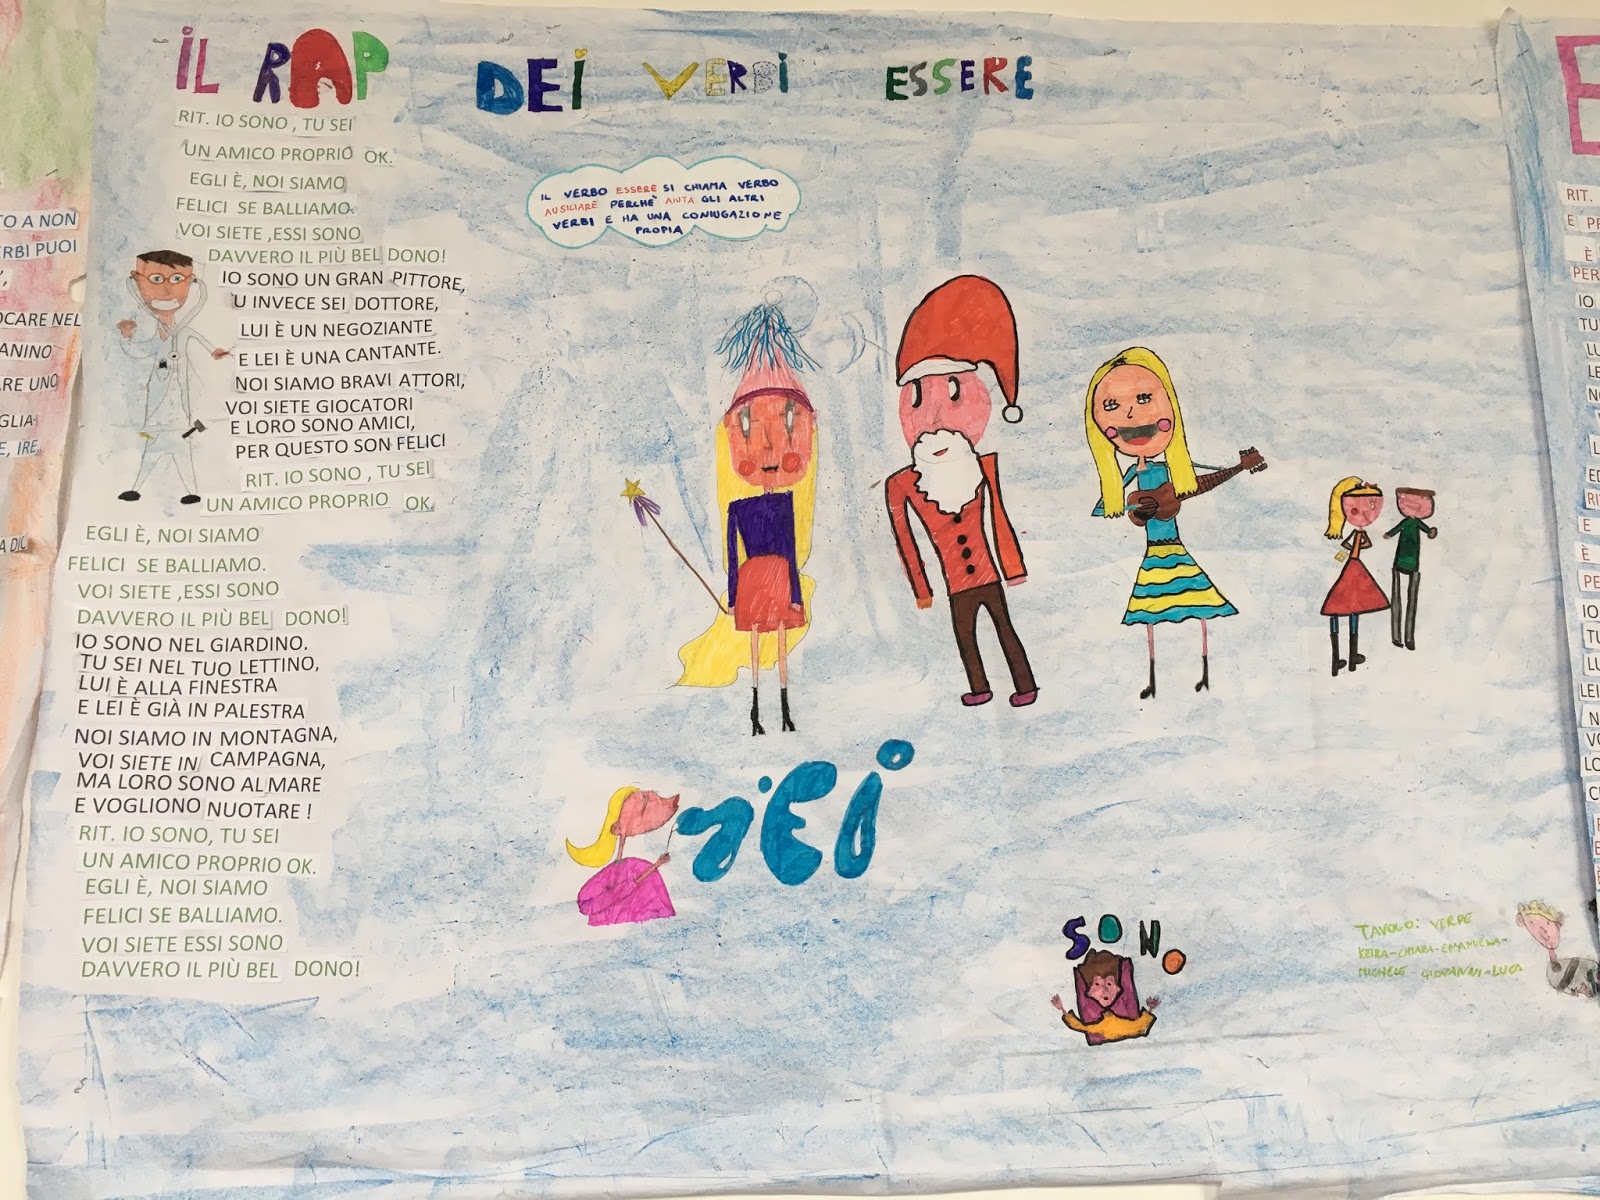 IL RAP DEI VERBI ESSERE
RIT. IO SONO , TU SEI
UN AMICO PROPRIO OK.
EGLI È, NOI SIAMO
FELICI SE BALLIAMO.
VOI SIETE ,ESSI SONO
DAVVERO IL PIÙ BEL DONO!
IO SONO UN GRAN PITTORE,
U INVECE SEI DOTTORE,
LUI È UN NEGOZIANTE
E LEI È UNA CANTANTE.
NOI SIAMO BRAVI ATTORI,
VOI SIETE GIOCATORI
E LORO SONO AMICI,
PER QUESTO SON FELICI
RIT. IO SONO , TU SEI
UN AMICO PROPRIO OK.
EGLI È, NOI SIAMO
FELICI SE BALLIAMO.
VOI SIETE ,ESSI SONO
DAVVERO IL PIÙ BEL DONO!
IO SONO NEL GIARDINO.
TU SEI NEL TUO LETTINO,
LUI È ALLA FINESTRA
E LEI È GIÀ IN PALESTRA
NOI SIAMO IN MONTAGNA,
VOI SIETE IN CAMPAGNA,
MA LORO SONO AL MARE
E VOGLIONO NUOTARE !
RIT. IO SONO, TU SEI
UN AMICO PROPRIO OK.
EGLI È, NOI SIAMO
FELICI SE BALLIAMO.
VOI SIETE ESSI SONO
DAVVERO IL PIÙ BEL DONO!
IL VERBO ESSERE SI CHIAMA VERBO
AUSILIARE PERCHÈ AIUTA GLI ALTRI
VERBI E HA UNA CONIUGAZIONE
PROPIA
SEI
SONO
TAVOLO: VERDE
KEIRA-CHIARA-EMANUELA-
MICHELE-GIOVANNI-LUCA
TO A NON
ERBI PUOI
OCARE NEL
ANINO
ARE UNO
GLIA
E, IRE,
E
RIT.
E PR
È
PER
IO
TU
LU
LE
NO
V
L
ED
RIT
E
È
PE
IO
TU
LU
LEI
N
VO
LO